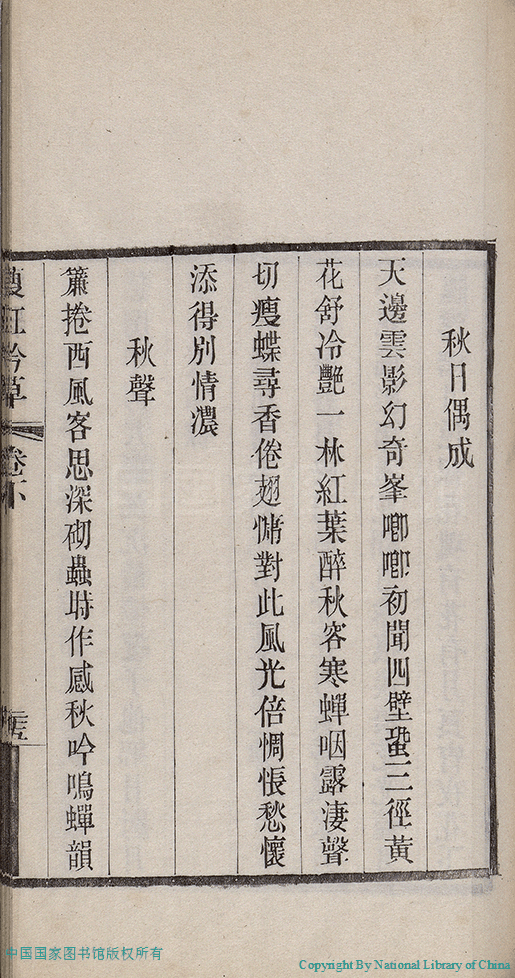 秋日偶成
天邊雲影幻奇峯唧唧初聞四壁蛩三徑黃
花舒冷艷一林紅葉醉秋容寒蟬咽露淒聲
切瘦蝶尋香倦翅慵對此風光倍惆悵愁懷
添得別情濃
秋聲
簾捲西風客思深砌蟲時作感秋吟鳴蟬韻
吟草 卷下
中国国家图书馆版权所有
Copyright By National Library of China